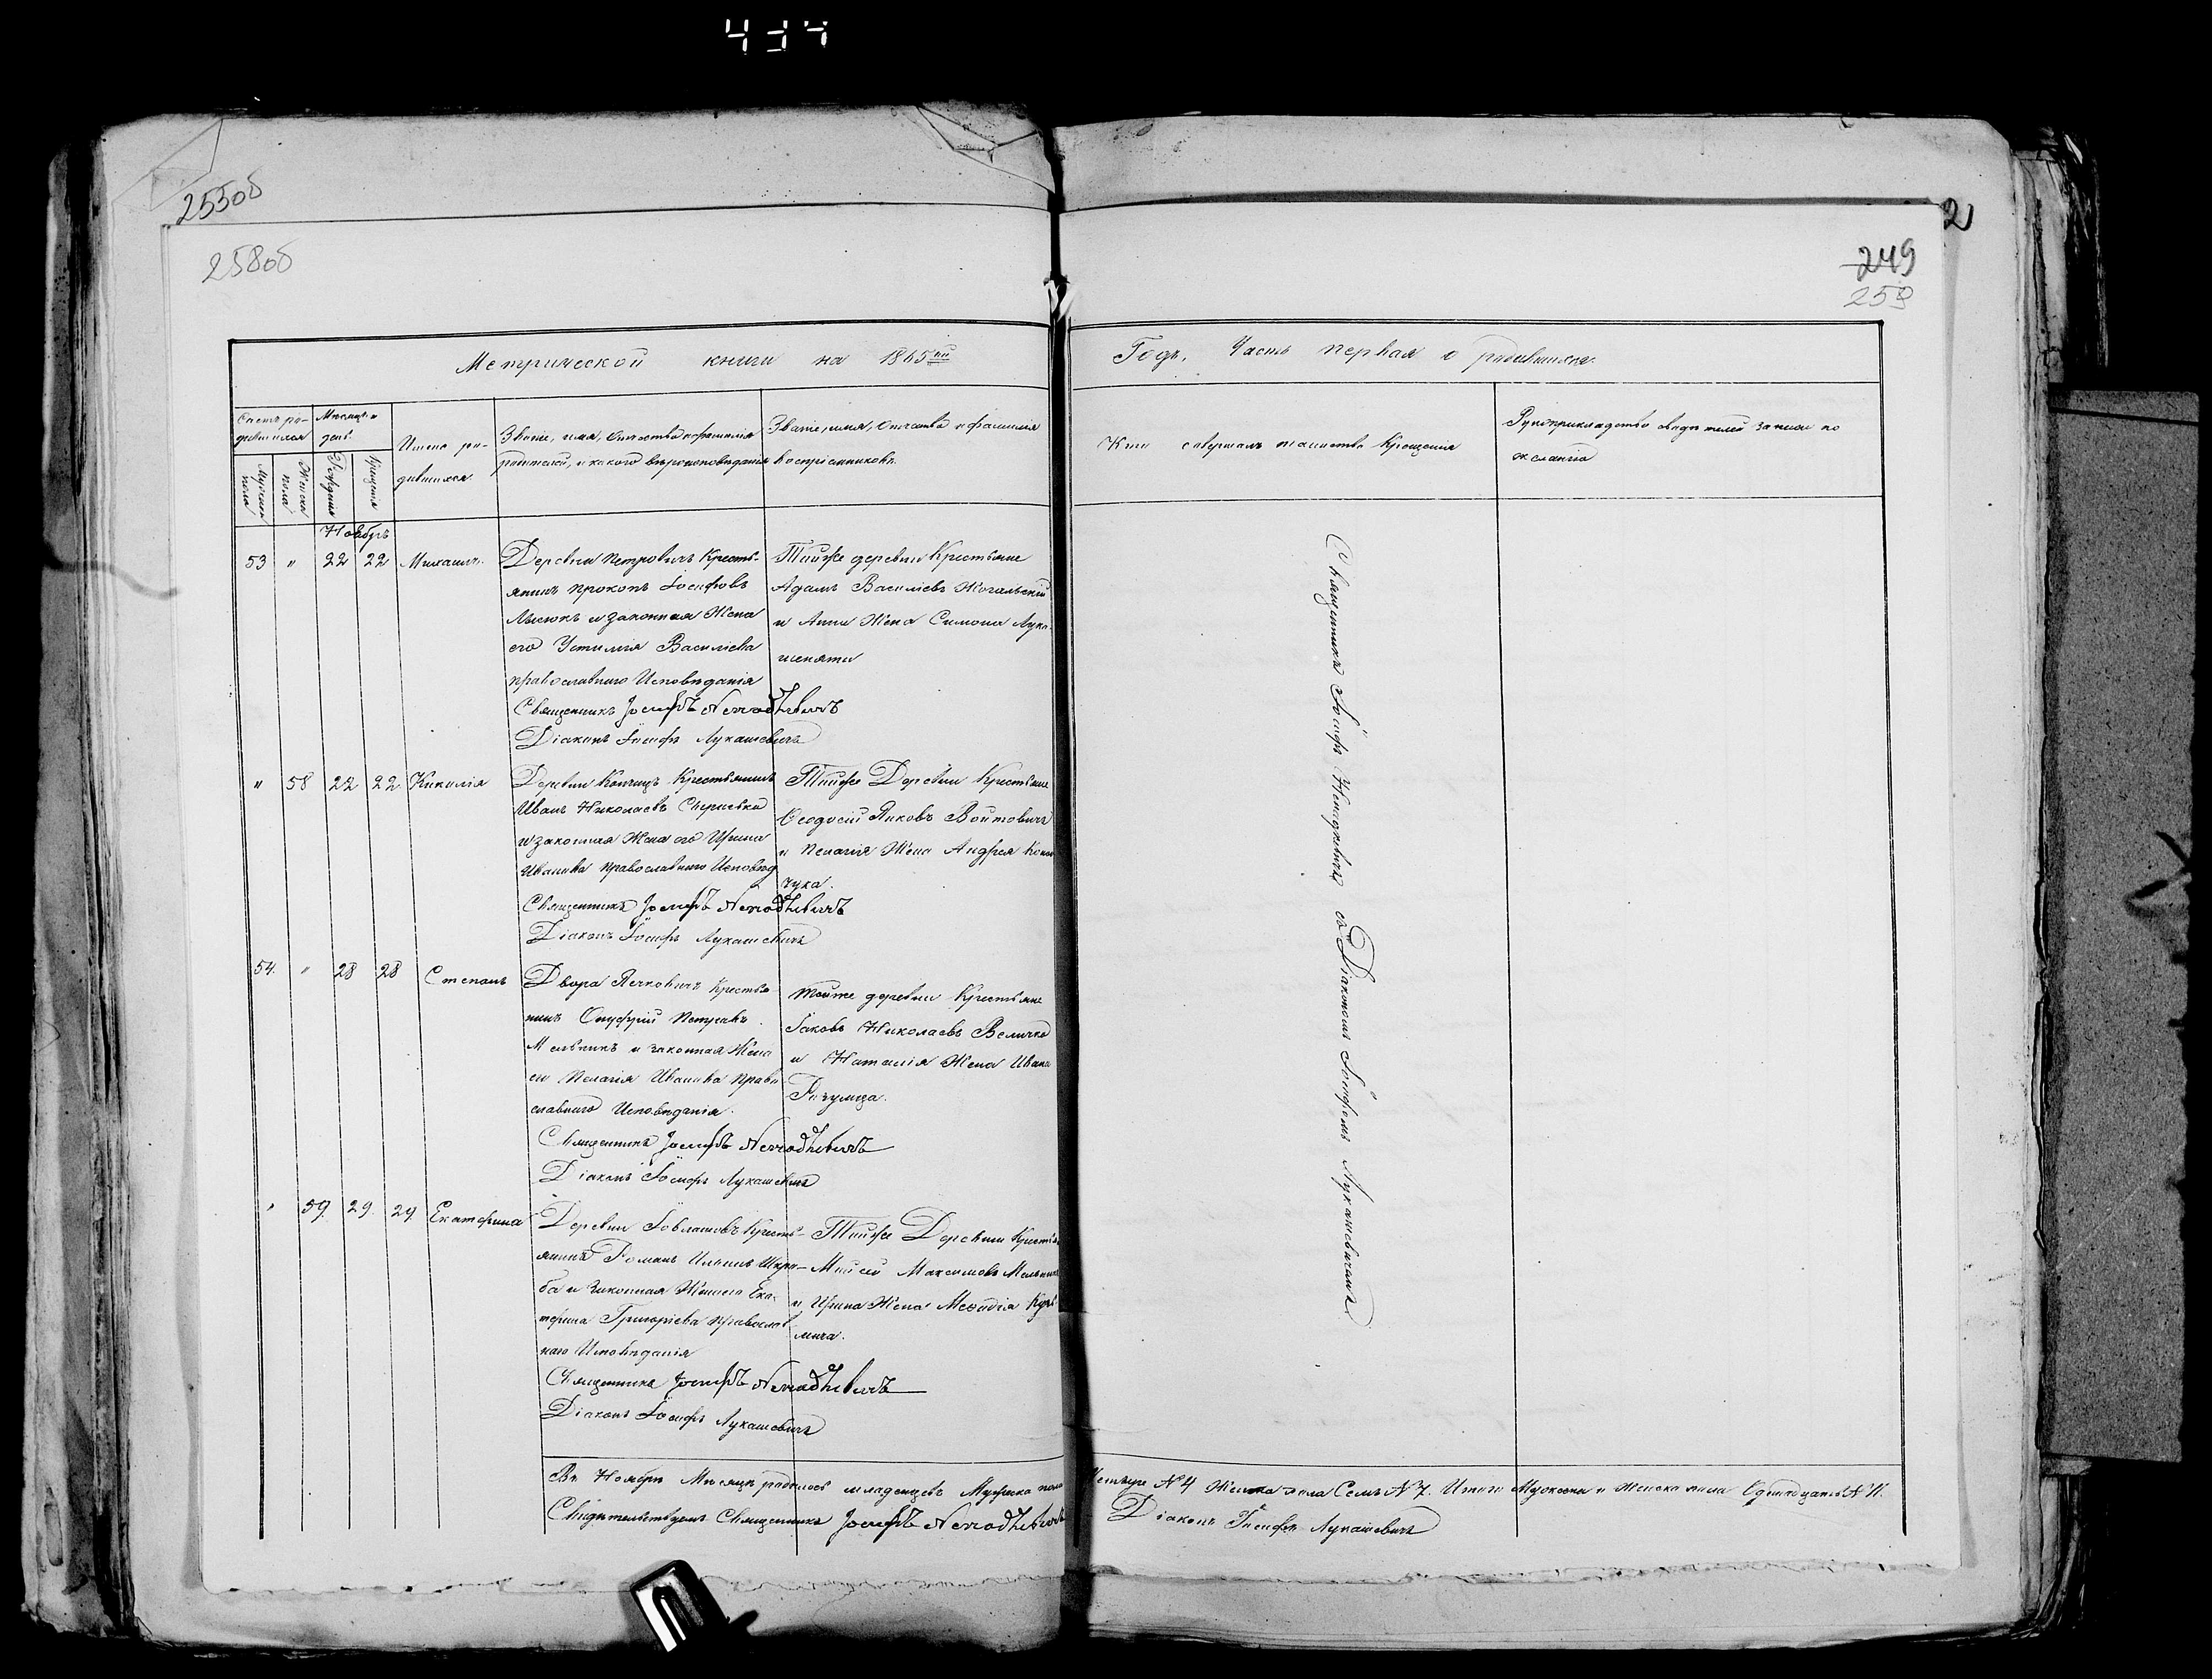 255об
258об
249
259
2
Метрической книги на 1865ый
Годъ, Часть первая о родившихся.
Счетъ родившихся
Мѣсяцъ и день
Мужеска пола
Женска пола
Рожденія
Крещенія
Имена родившихся
Званіе, имя, отчество и фамилія
родителей, и какого вѣроисповѣданія
Званіе, имя, отчество и фамилія
воспріемниковъ.
Кто совершалъ таинство Крещенія
Рукоприкладство свидѣтелей записи по
желанію
Ноябрь
53 " 22 22 Михаилъ.
Деревни Петровичъ Кресть-
янинъ Прокопъ Іосифовъ
и законная Жена
его Устинія Василіева
православнаго Исповѣданія
Священникъ Іосифъ
Діаконъ Іосифъ Лукашевичъ
Тойже деревни Крестьяне
Адамъ Василіевъ
и Анна Жена Симона Лука-
шеняти
" 58 22 22 Киликія
Деревни Копчицъ Крестьянинъ
Иванъ Николаевъ
и законная Жена его Ирина
Иванова православнаго Исповѣд
Священникъ Іосифъ
Діаконъ Іосифъ Лукашевичъ
Тойже Деревни Крестьяне
Ѳеодосій Яковъ Войтовичъ
и Пелагія Жена Андрея
чука.
54. " 28 28 Степанъ
Двора Ячковичъ Крестья-
нинъ Онуфрій Петровъ
Мельникъ и законная Жена
ея Пелагія Иванова Право
славнаго Исповѣданія.
Священникъ Іосифъ
Діаконъ Іосифъ Лукашевичъ
тойже деревни Крестьяне
Іаковъ Николаевъ Величко
и Наталія Жена Ивана
" 59. 29. 29. Екатерина
Деревни Крестъ-
янинъ Романъ Ильинъ Шкра-
ба и Законная Жена его Ека-
терина Григоріева православ-
наго Исповѣданія
Священникъ Іосифъ
Діаконъ Іосифъ Лукашевичъ
Тойже Деревни Крестья
Моисей Максимовъ Мельник
и Ирина Жена Меѳодія Кузь-
мича.
Священникъ Іосифъ съ Діакономъ Іосифомъ Лукашевичемъ
Въ Ноябрѣ Мѣсяцѣ родилось младенцевъ Мужеска пола
Четыре N 4 Женска пола Семь N 7. Итого Мужеска и Женска пола Одиннадцать N 11.
Свидѣтельствуемъ Священникъ Іосифъ
Діаконъ Іосифъ Лукашевичъ